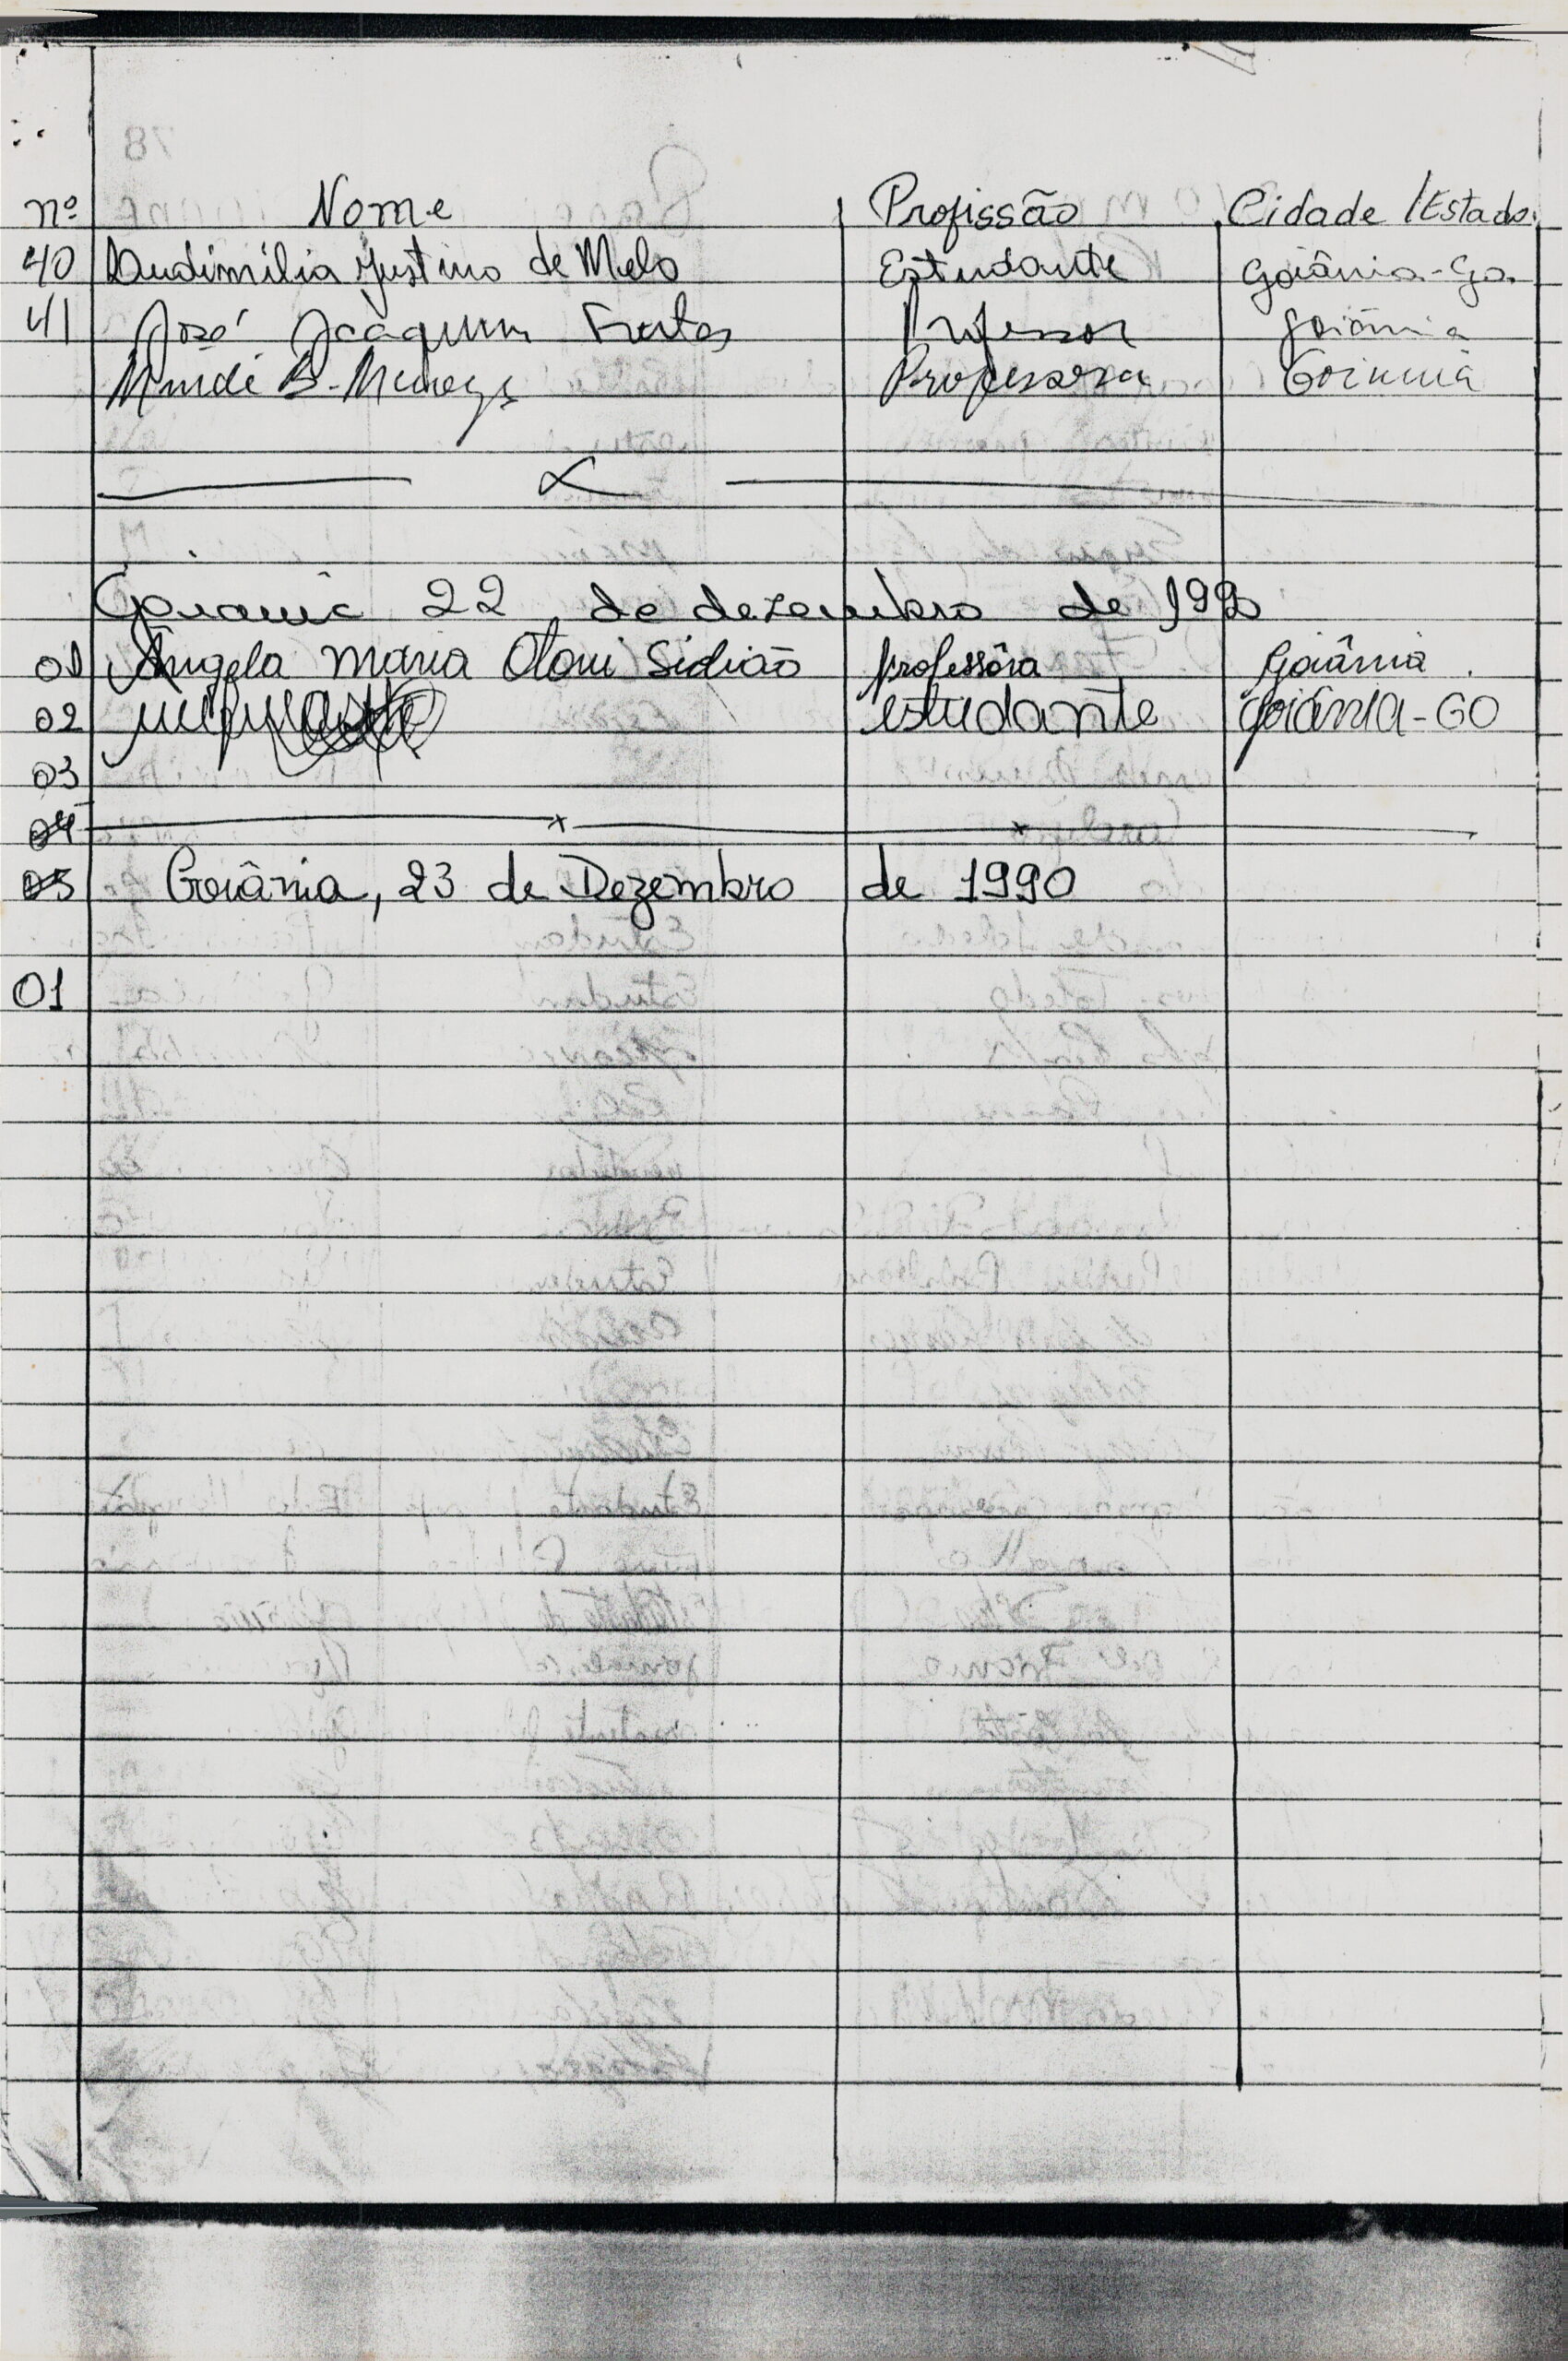 nº Nome Profissão Cidade /Estado.
40 Ludimilia Justino de Melo Estudante Goiânia-Go.
41 José Joaquim Freitas Professor Goiânia
B. Professora Goiânia
Goiania 22 de dezembro de 1990
01 Ângela maria Otoni Sidião professôra Goiânia.
02 estudante Goiânia-GO
03
04
05 Goiânia, 23 de Dezembro de 1990
01